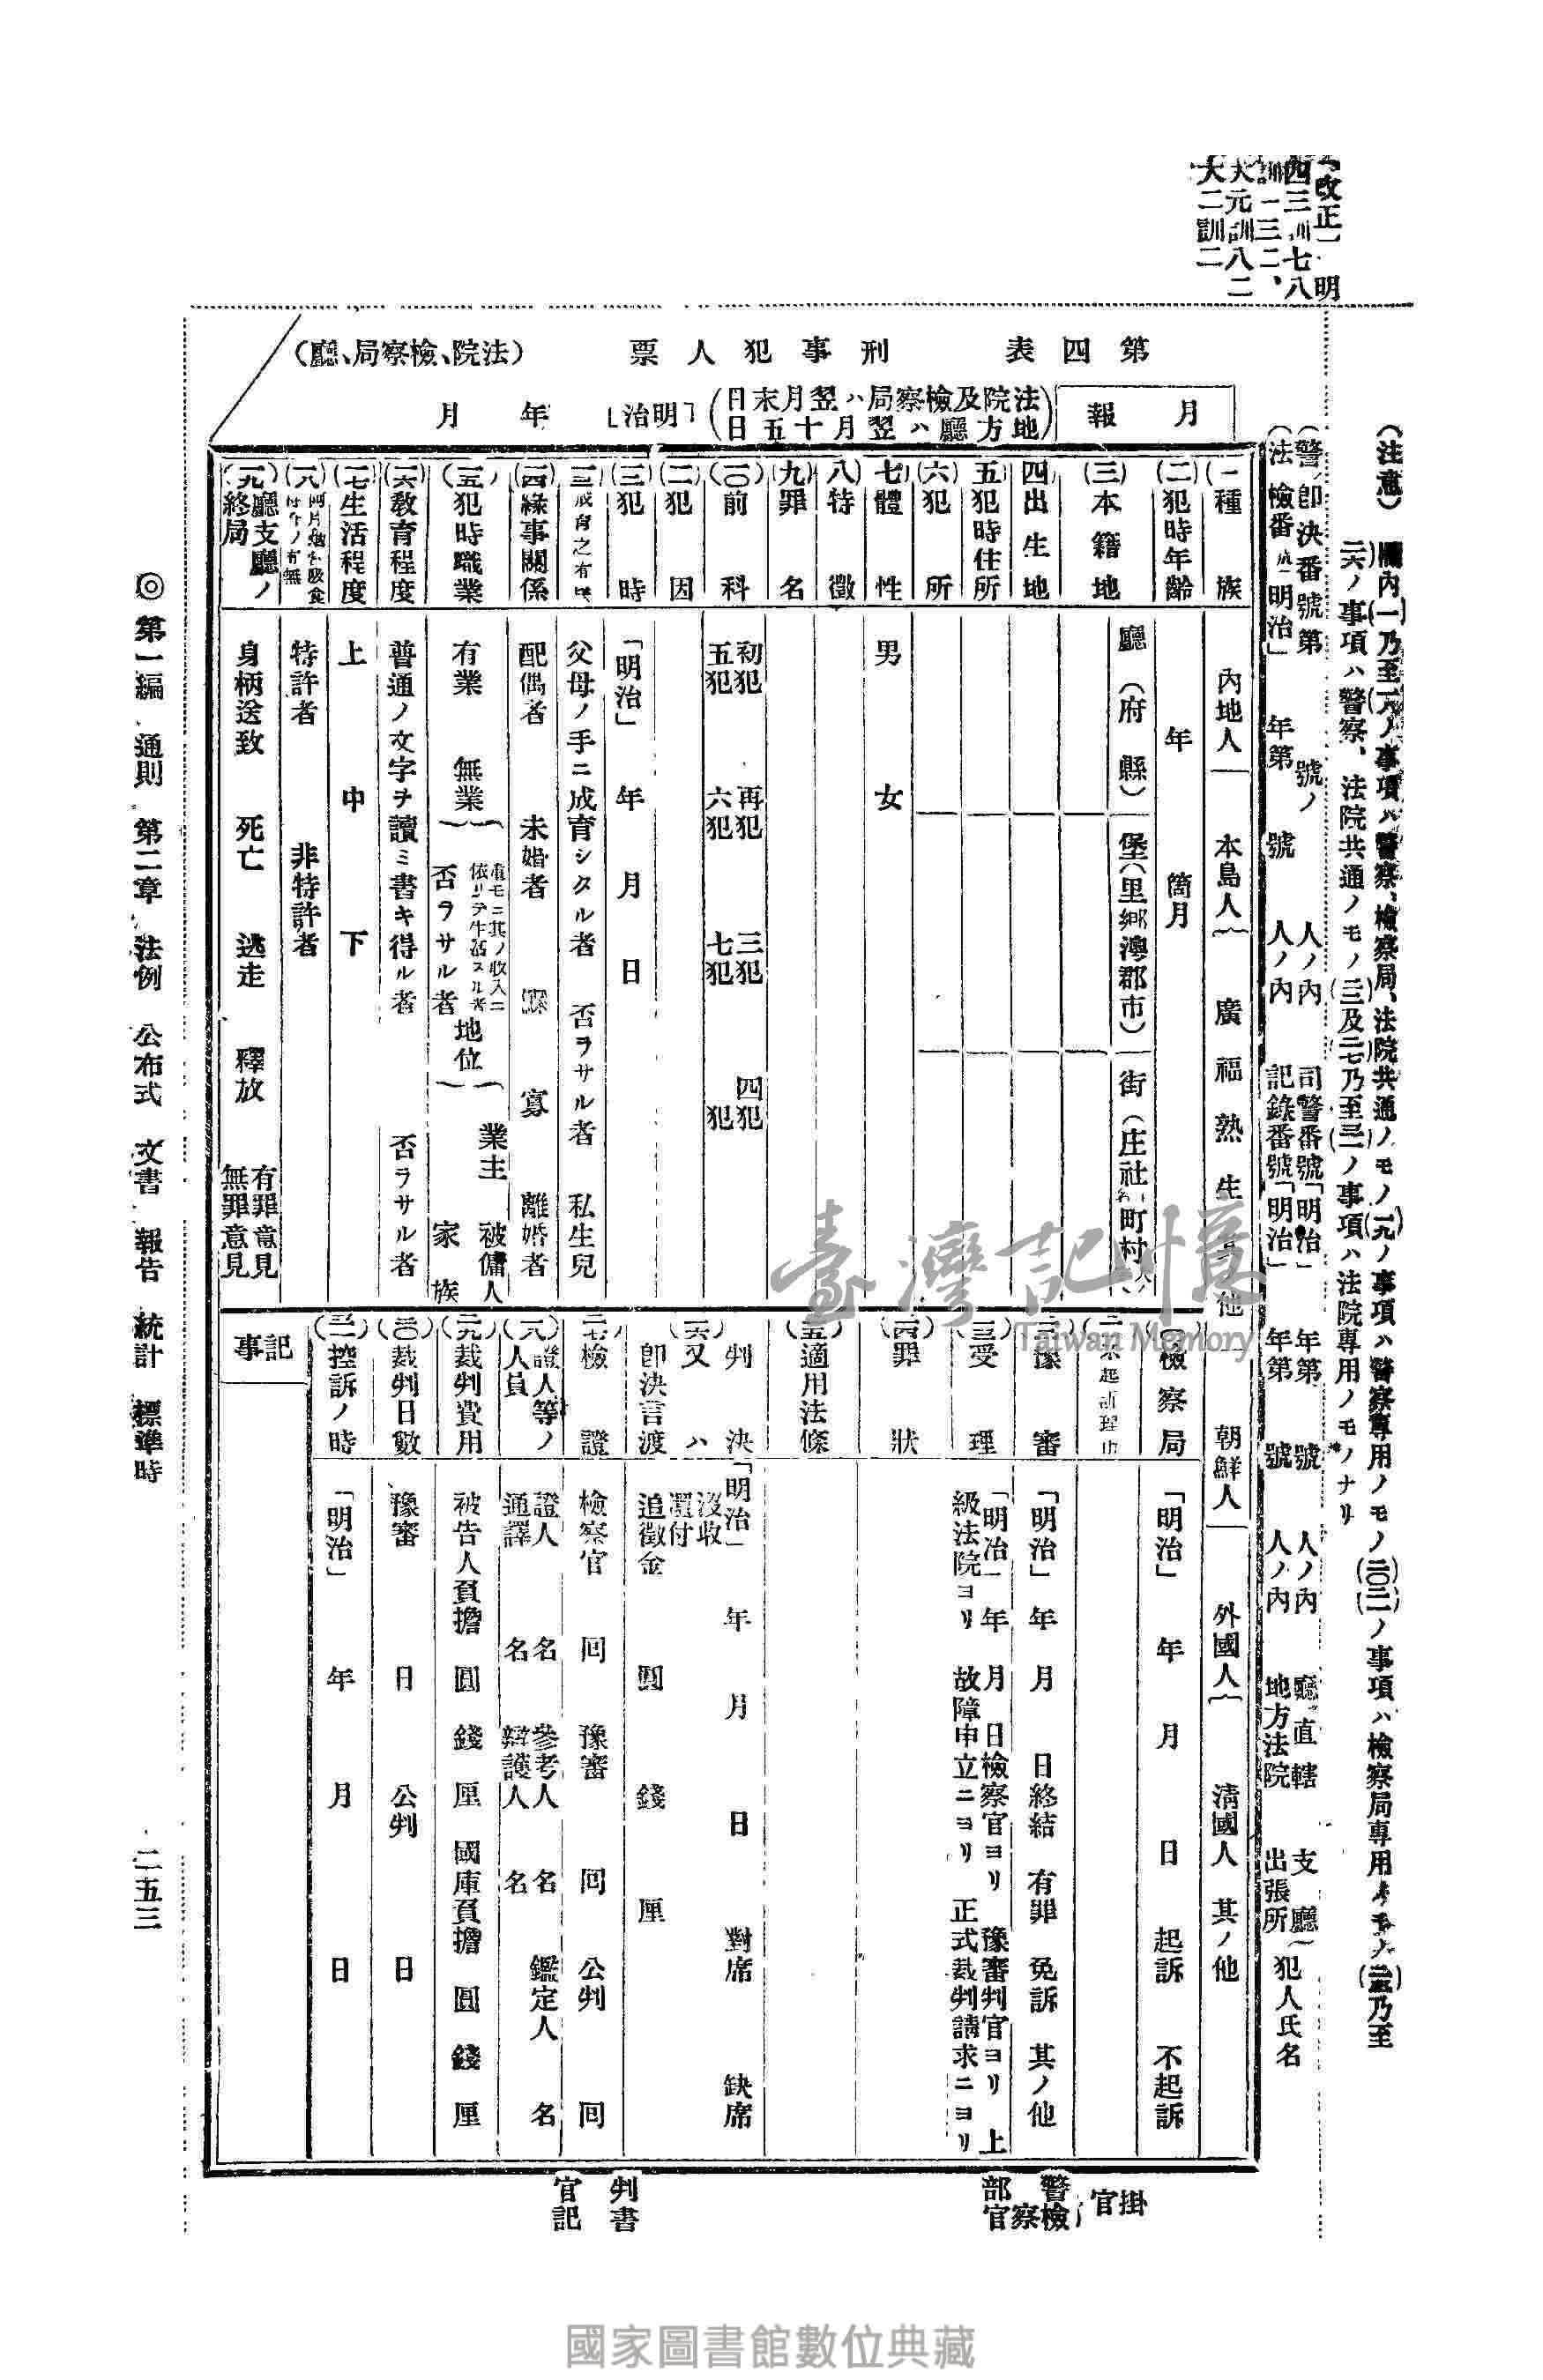 「改正」明
四三訓七八
訓一三二、
大元訓八二
大二訓二
（注意）
欄內(一)乃至(一八)ノ事項ハ警察、檢察局、法院共通ノモノ(一九)ノ事項ハ警察專用ノモノ(二〇)(二一)ノ事項ハ檢察局專用ノモノ
乃至
(二六)ノ事項ハ警察、法院共通ノモノ(二三)及(二七)乃至(三一)ノ事項ハ法院專用ノモノナリ
（警）卽決番號第　號ノ　人ノ內　司警番號「明治」　年第　號　人ノ內　廳直轄　支廳
（法）檢番號「明治」　年第　號　人ノ內　記錄番號「明治」　年第　號　人ノ內　地方法院　出張所
犯人氏名
第四表　刑事犯人票　（法院、檢察局、廳）
月報
（法院及檢察局ハ翌月末日
地方廳ハ翌月十五日）
「明治」　年　月
(一)種族　內地人　本島人　廣　福　熟　生　其他　朝鮮人　外國人　淸國人　其ノ他
(二)犯時年齡　年　箇月
(三)本籍地　廳（府縣）　堡（里鄉澳郡市）　街（庄社町村）
(四)出生地
(五)犯時住所
(六)犯所
(七)體性　男　女
(八)特徵
(九)罪名
(一〇)前科　初犯　再犯　三犯　四犯
五犯　六犯　七犯　犯
(一一)犯因
(一二)犯時　「明治」　年　月　日
(一三)成育之有　父母ノ手ニ成育シタル者　否ラサル者　私生兒
(一四)緣事關係　配偶者　未婚者　鰥　寡　離婚者
(一五)犯時職業　有業　無業　モ其ノ收入ニ
依リテ生活スル者
否ラサル者　地位　業主　被傭人
家族
(一六)敎育程度　普通ノ文字ヲ讀ミ書キ得ル者　否ラサル者
(一七)生活程度　上　中　下
(一八)阿片烟吸食
ノ有無　特許者　非特許者
(一九)廳支廳ノ
終局　身柄送致　死亡　逃走　釋放　有罪意見
無罪意見
(二〇)檢察局　「明治」　年　月　日　起訴　不起訴
(二一)不起訴理由
(二二)豫審　「明治」年　月　日終結　有罪　免訴　其ノ他
(二三)受理　「明治」年　月　日檢察官ヨリ　豫審判官ヨリ　上
級法院ヨリ　故障申立ニヨリ　正式裁判請求ニヨリ
(二四)罪狀
(二五)適用法條
(二六)判決
又ハ
卽決言渡　「明治」　年　月　日　對席　缺席
沒收
還付
追徵金　圓　錢　厘
(二七)檢證　檢察官　回　豫審　回　公判　回
(二八)證人等ノ
人員　證人　名　參考人　名　鑑定人　名
通譯　名　辯護人　名
(二九)裁判費用　被告人負擔　圓　錢　厘　國庫負擔　圓　錢　厘
(三〇)裁判日數　豫審　日　公判　日
(三一)控訴ノ時　「明治」　年　月　日
記事
掛官
警部
檢察官
判官
書記
◎第一編　通則　第二章　法例　公布式　文書　報告　統計　標準時
二五三
臺灣記憶
Taiwan Memory
國家圖書館數位典藏